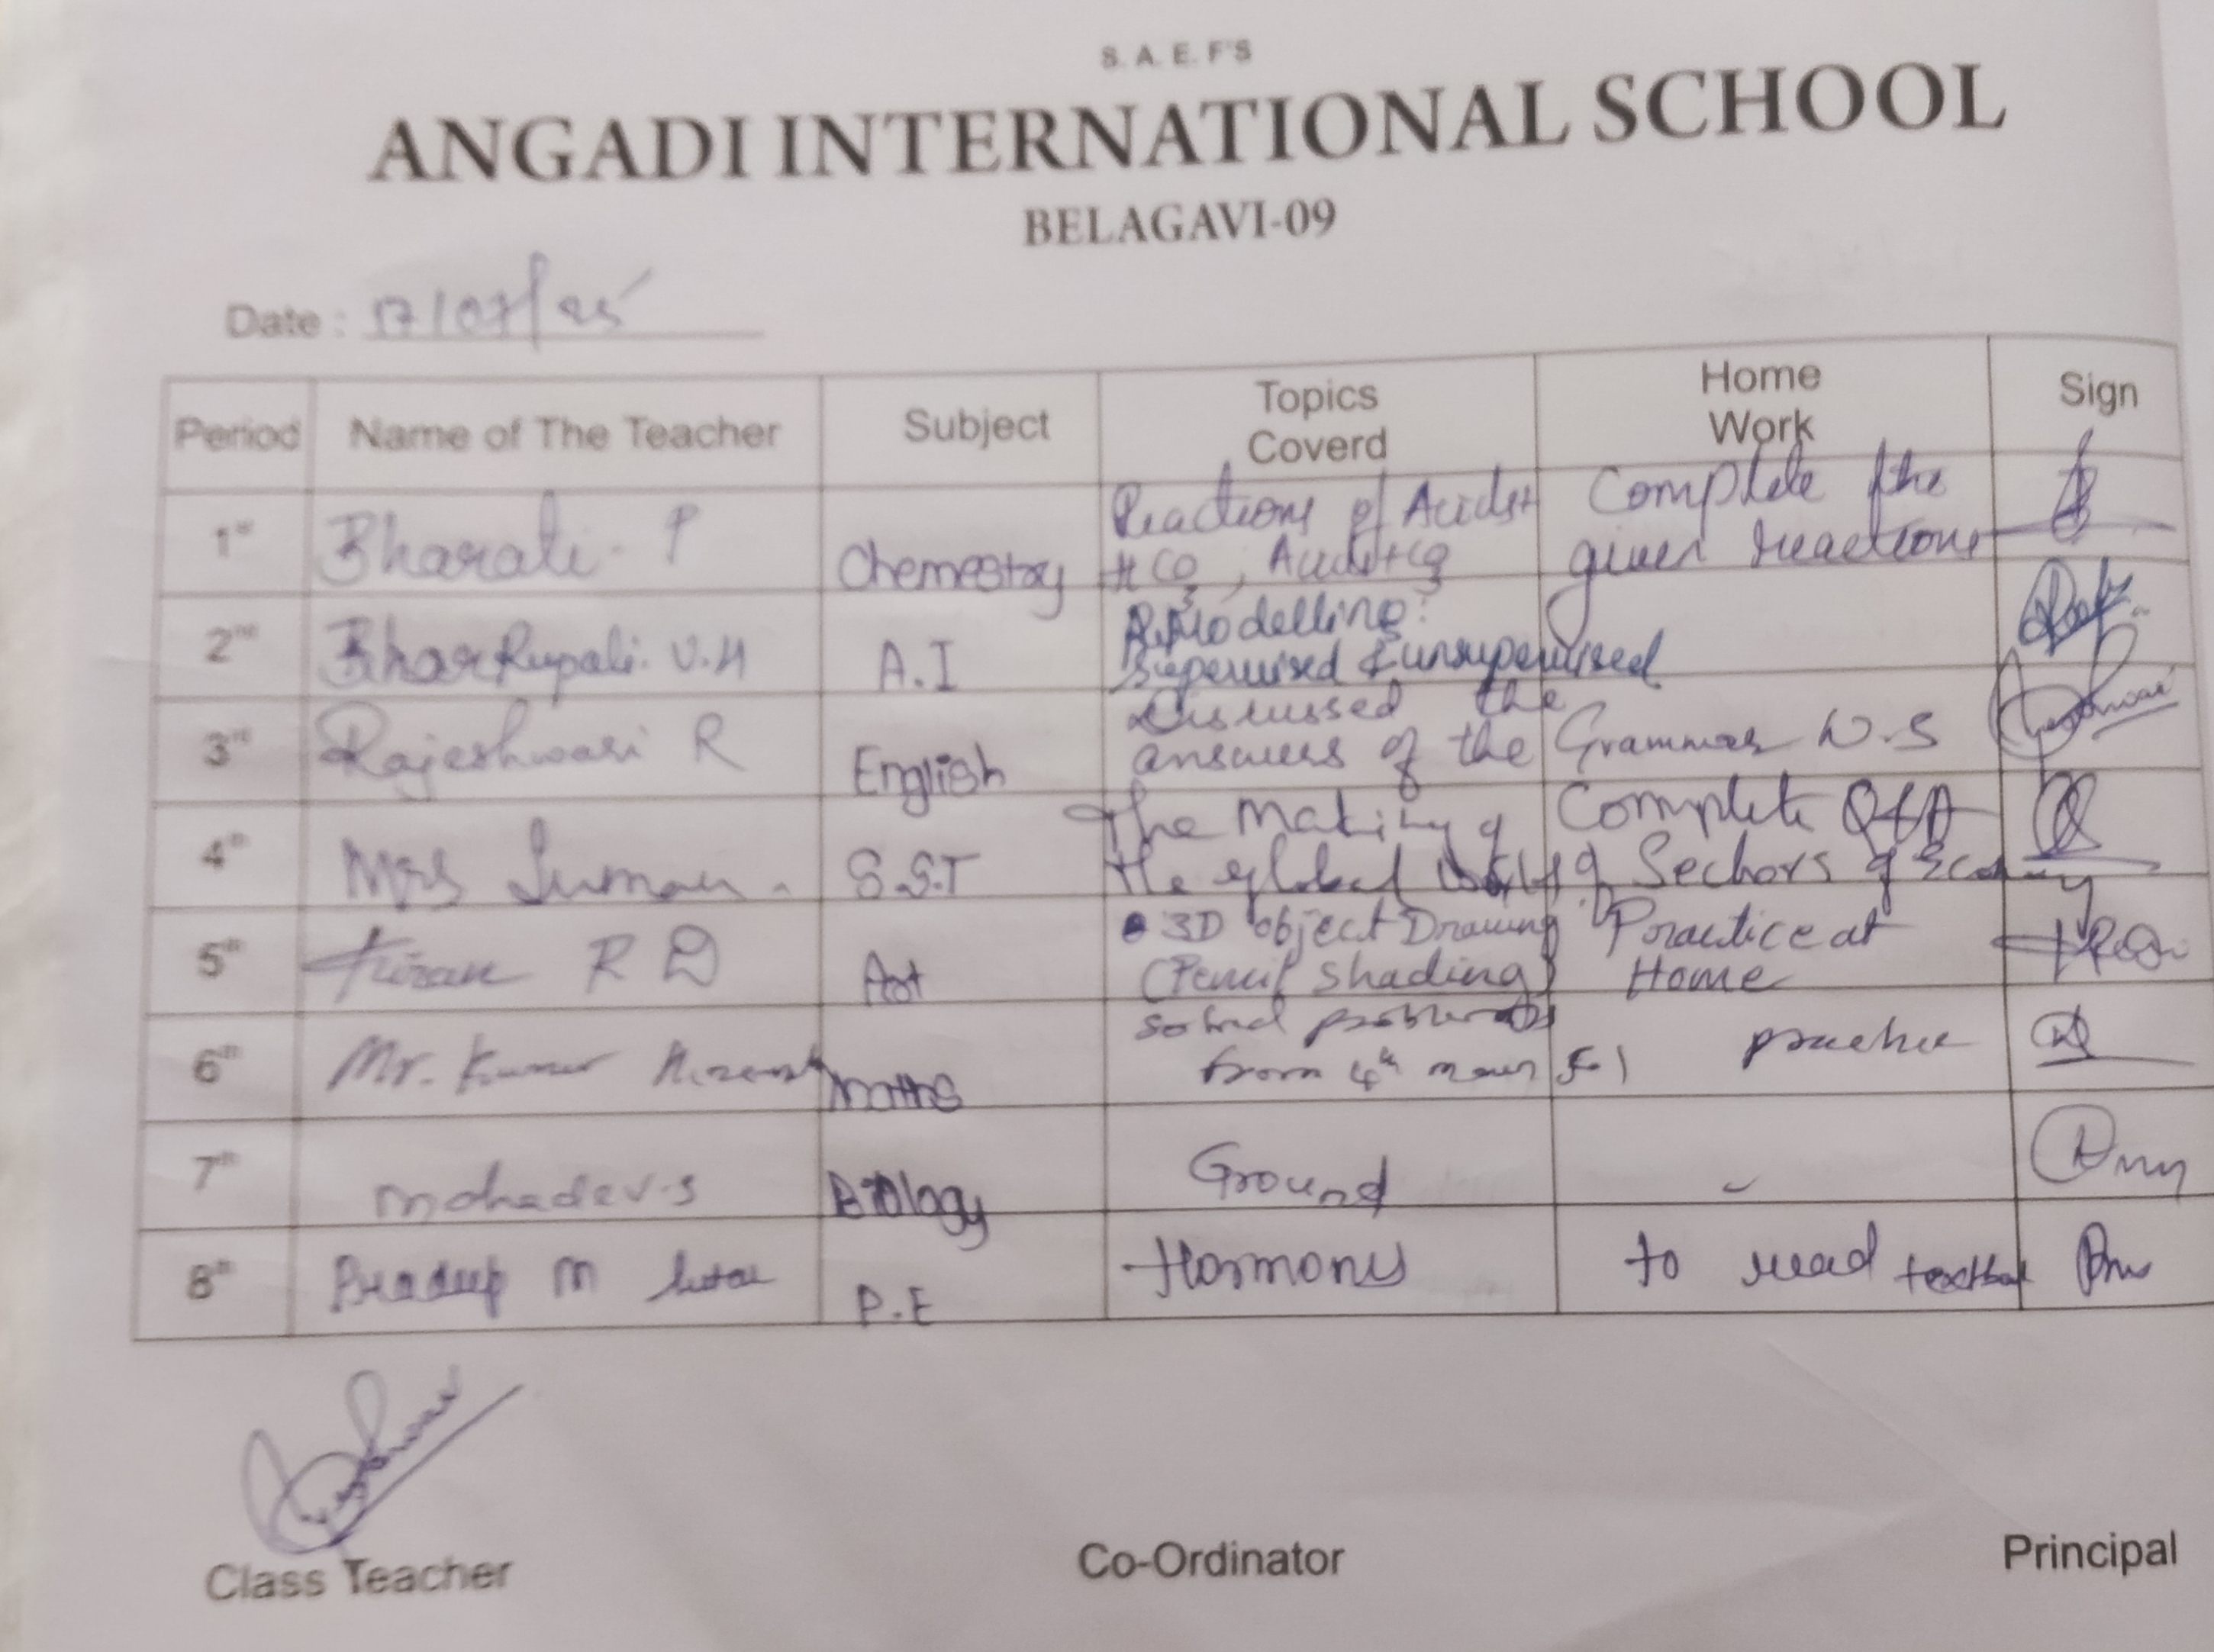 S. A. E. F'S
ANGADI INTERNATIONAL SCHOOL
BELAGAVI-09
Date : 17/07/25
Period Name of The Teacher Subject Topics Coverd Home Work Sign
1st Bharati. P Chemestry Reactions of Acids+ HCO3, Acids+CO3 Complete the given reactions
2nd Rupali. V.H A.I Modelling: Supervised & unsupervised
3rd Rajeshwari R English Discussed the answers of the Grammar W.S
4th Mrs Suman. S.S.T The Making of the global Complete Q&A Sectors of Economy
5th Kiran R D Art 3D object Drawing (Pencil Shading) Practice at Home
6th Mr. Kumar Maths Solved problems from 4th main practice
7th Mahadev.S Biology Ground -
8th Pradeep M Sutar P.E Hormons to read
Class Teacher Co-Ordinator Principal